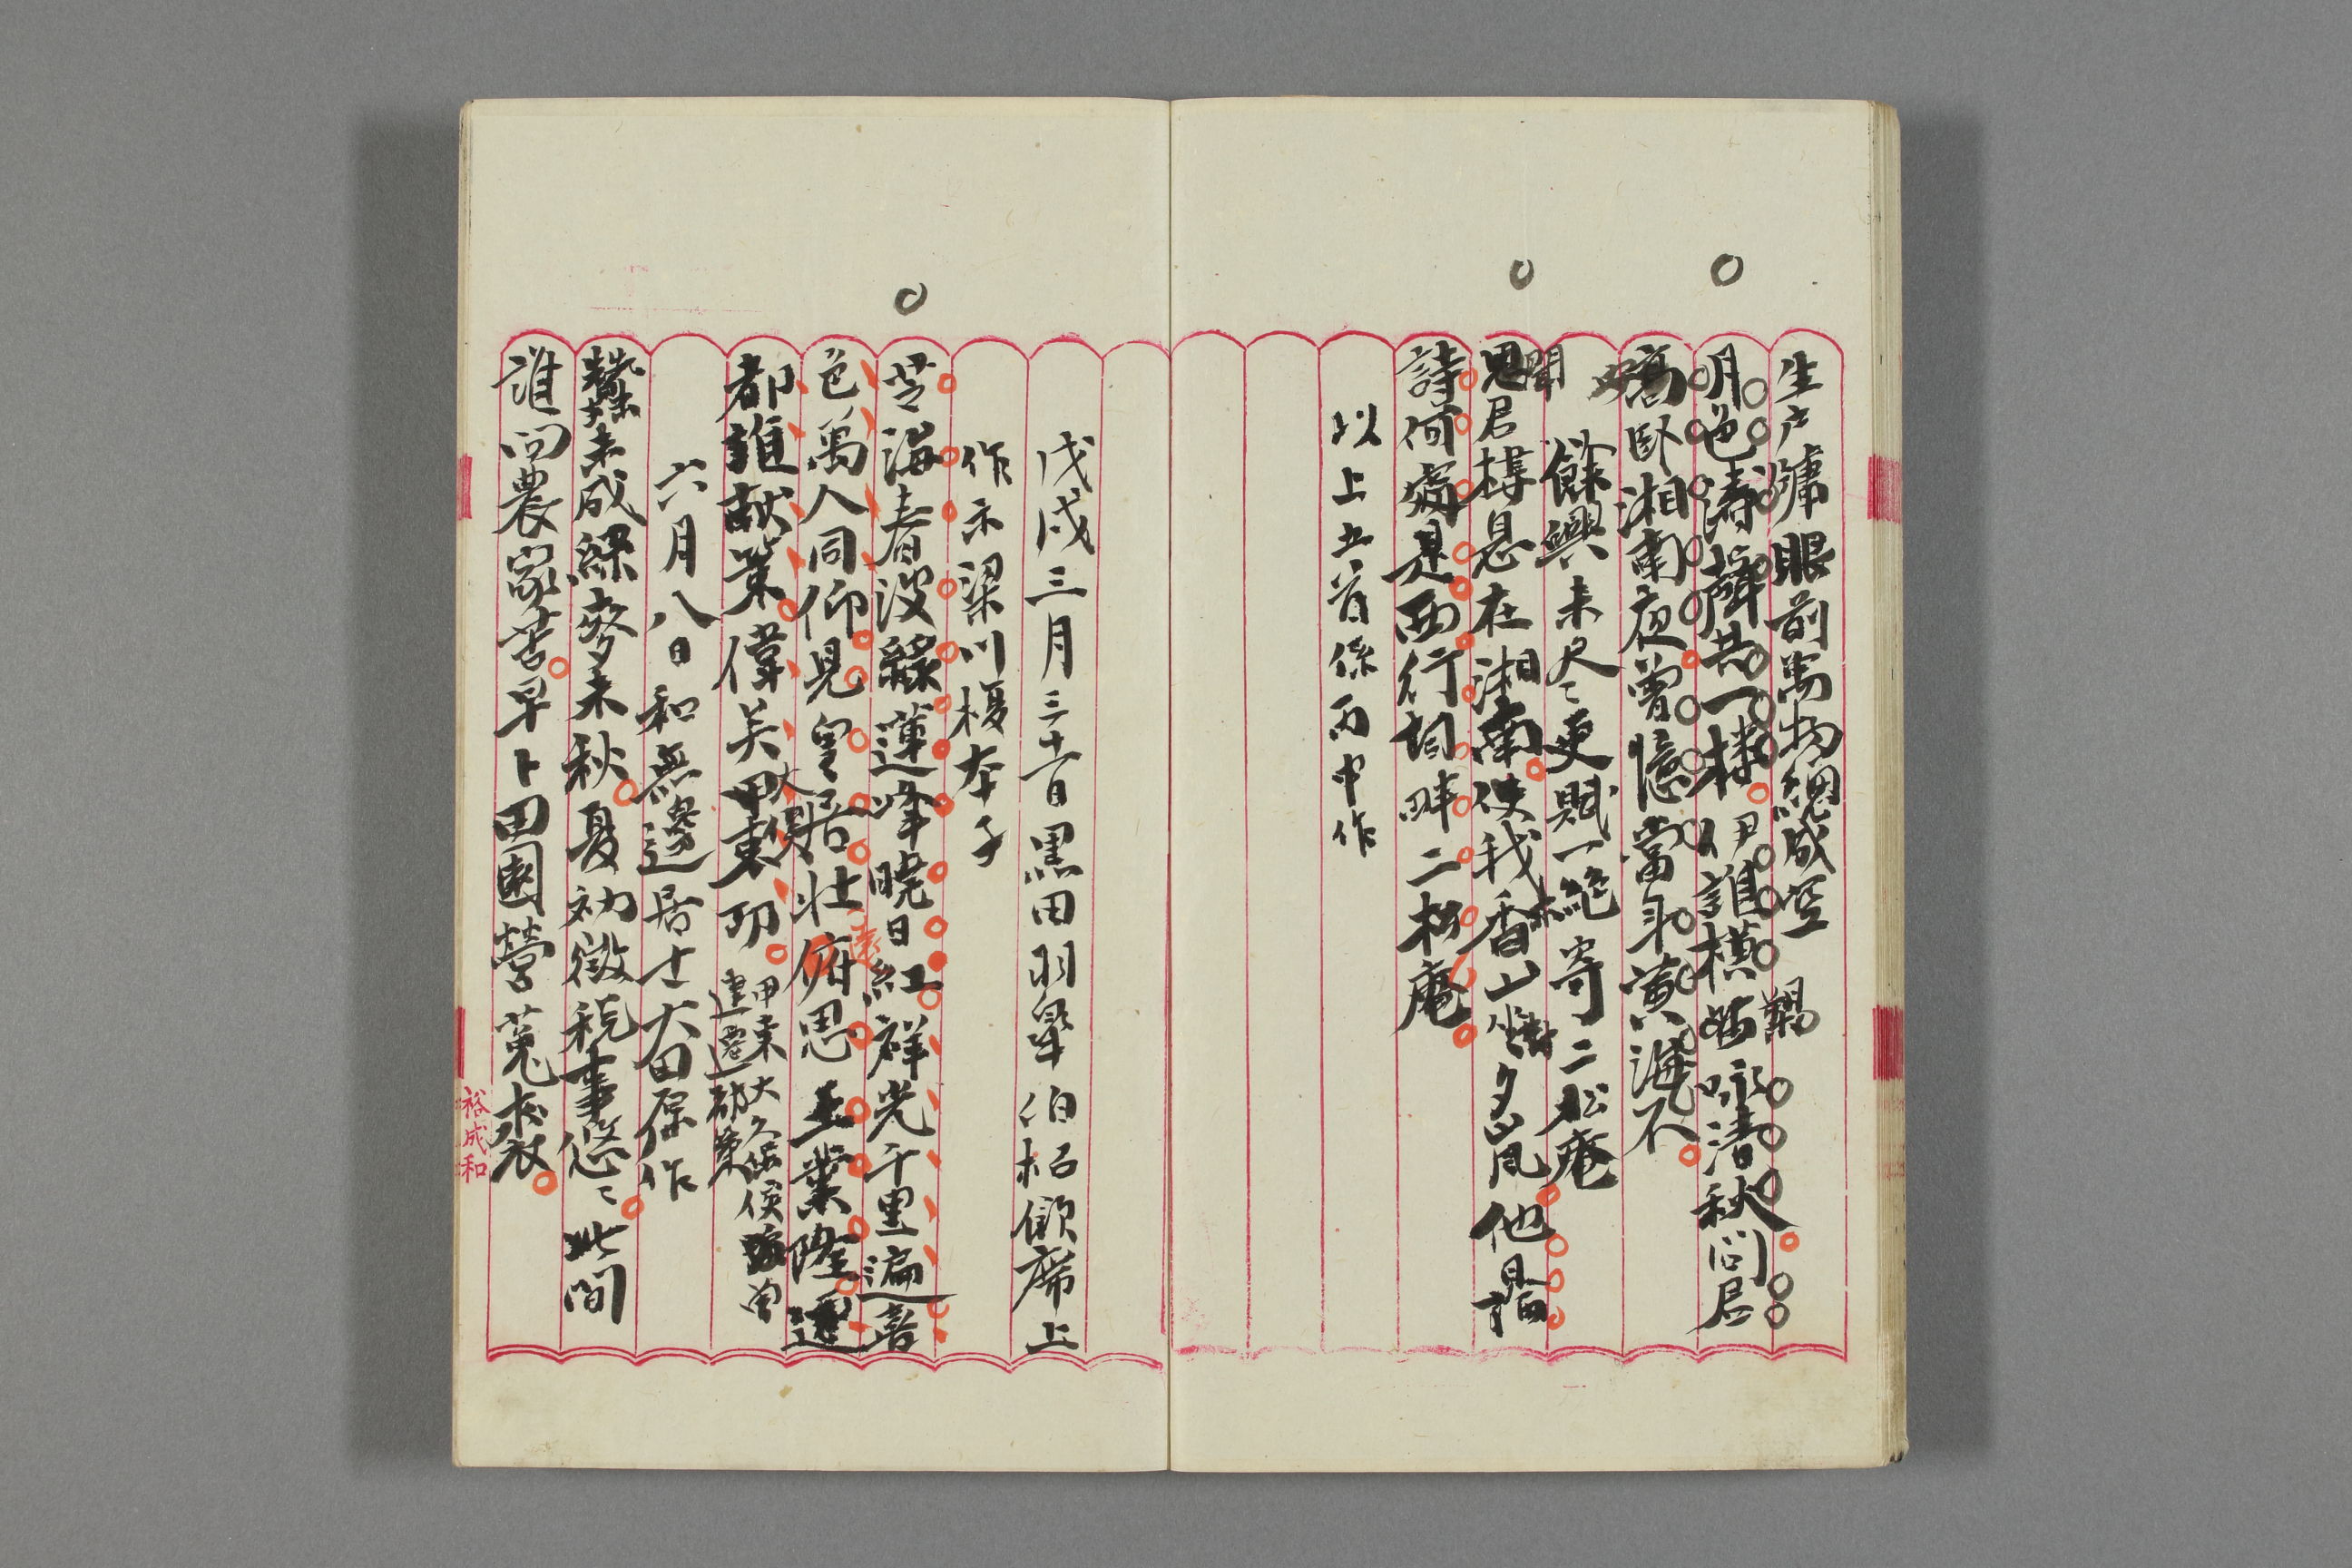 生戸牖眼前萬物總成空
月色濤聲共一樓伊誰横笛咏清秋問君
高臥湘南夜曽憶當年黄海不
餘興未尽更賦一絶寄二松庵
聞
思君棲息在湘南使我香山夕嵐他日
詩何處是西行祠畔二松庵
以上五首係丙申作
戊戌三月三十一日黒田羽皐伯招飲席上
作示梁川榎本子
芝海春波緑蓮峰曉日紅祥光千里遍喜
色萬人同仰見皇居壯俯思王業隆遷
都誰献策偉矣甲東功
大久保侯曽
甲東
建遷都策
六月八日和無邊居士大田原作
蠶未成繰麥未秋夏初徴税事悠々此間
誰問農家苦早卜田園營菟裘
裕成和